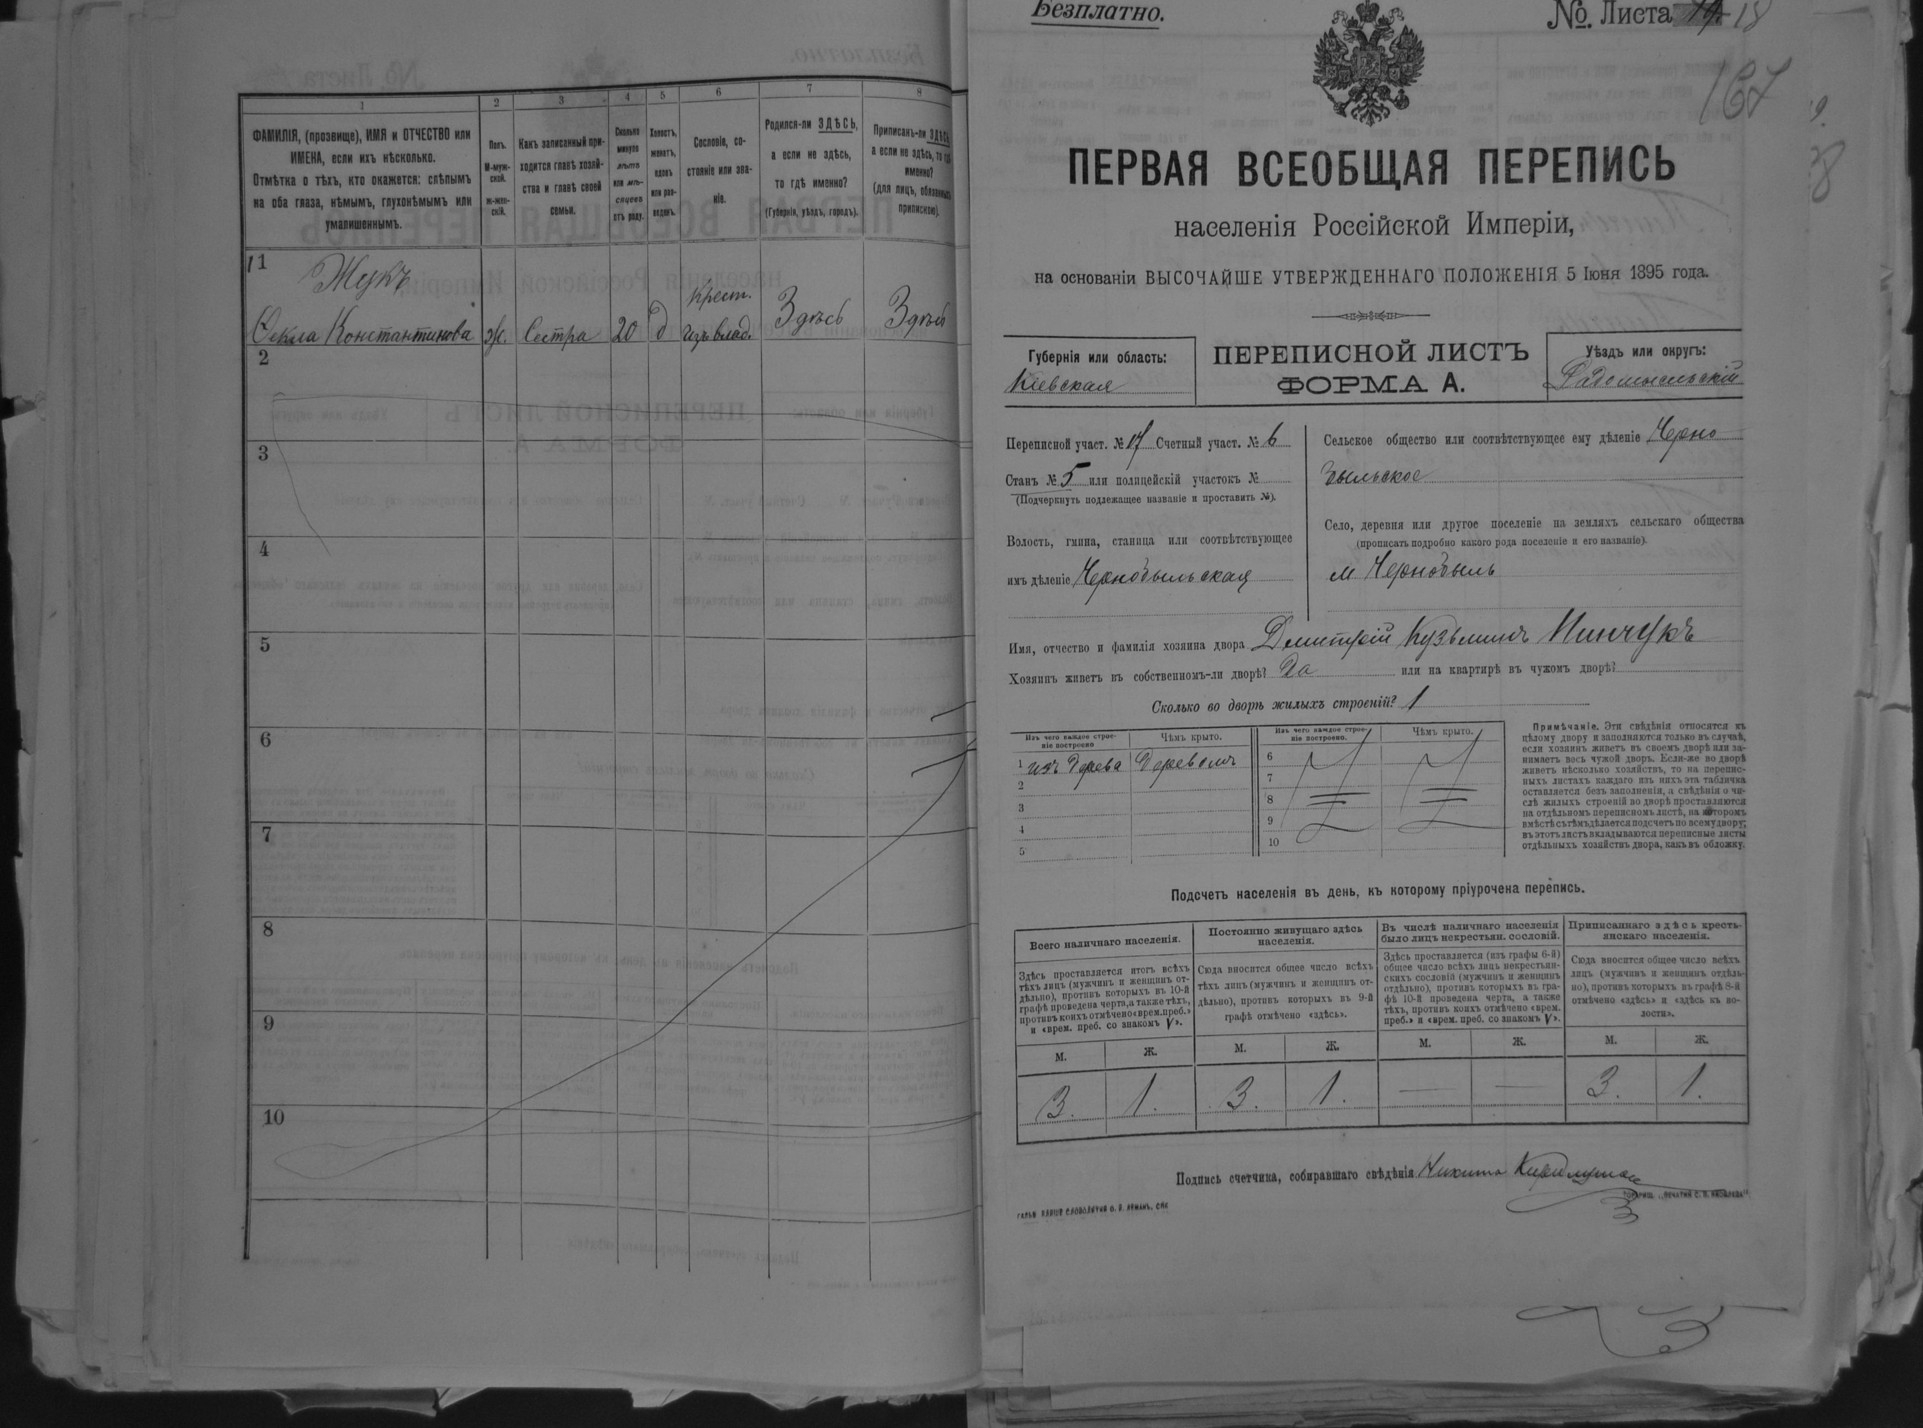 1 2 3 4 5 6 7 8
ФАМИЛІЯ, (прозвище), ИМЯ и ОТЧЕСТВО или
ИМЕНА, если ихъ нѣсколько.
Отмѣтка о тѣхъ, кто окажется: слѣпымъ
на оба глаза, нѣмымъ, глухонѣмымъ или
умалишеннымъ.
Полъ.
М-муж-
ской.
Ж-жен-
скій.
Какъ записанный при-
ходится главѣ хозяй-
ства и главѣ своей
семьи.
Сколько
минуло
лѣтъ
или мѣ-
сяцевъ
отъ роду.
Холостъ,
женатъ,
вдовъ
или раз-
веденъ.
Сословіе, со-
стояніе или зва-
ніе.
Родился-ли ЗДѢСЬ,
а если не здѣсь,
то гдѣ именно?
(Губернія, уѣздъ, городъ).
Приписанъ-ли ЗДѢСЬ,
а если не здѣсь, то гдѣ
именно?
(для лицъ, обязанныхъ
припиской).
11
Жукъ
Ѳекла Константинова ж. Сестра 20 д Крест. изъ влад. Здѣсь Здѣсь
2
3
4
5
6
7
8
9
10
Безплатно.
№. Листа 18
167
ПЕРВАЯ ВСЕОБЩАЯ ПЕРЕПИСЬ
населенія Россійской Имперіи,
на основаніи ВЫСОЧАЙШЕ УТВЕРЖДЕННАГО ПОЛОЖЕНІЯ 5 Іюня 1895 года.
Губернія или область:
Кіевская
ПЕРЕПИСНОЙ ЛИСТЪ
ФОРМА А.
Уѣздъ или округъ:
Радомысльскій
Переписной участ. № 17 Счетный участ. № 6
Станъ № 5 или полицейскій участокъ №
(Подчеркнуть подлежащее названіе и проставить №).
Волость, гмина, станица или соотвѣтствующее
имъ дѣленіе Чернобыльская
Сельское общество или соотвѣтствующее ему дѣленіе Черно
быльское
Село, деревня или другое поселеніе на земляхъ сельскаго общества
(прописать подробно какого рода поселеніе и его названіе).
м Чернобыль
Имя, отчество и фамилія хозяина двора Димитрій Кузьминъ Пинчукъ
Хозяинъ живетъ въ собственномъ-ли дворѣ? Да или на квартирѣ въ чужомъ дворѣ?
Сколько во дворѣ жилыхъ строеній? 1
Изъ чего каждое строе-
ніе построено
Чѣмъ крыто.
Изъ чего каждое строе-
ніе построено.
Чѣмъ крыто.
1 изъ Дерева Деревомъ
2
3
4
5
6
7
8
9
10
Примѣчаніе. Эти свѣдѣнія относятся къ
цѣлому двору и заполняются только въ случаѣ,
если хозяинъ живетъ въ своемъ дворѣ или за-
нимаетъ весь чужой дворъ. Если-же во дворѣ
живетъ нѣсколько хозяйствъ, то на перепис-
ныхъ листахъ каждаго изъ нихъ эта табличка
оставляется безъ заполненія, а свѣдѣнія о чи-
слѣ жилыхъ строеній во дворѣ проставляются
на отдѣльномъ переписномъ листѣ, на которомъ
вмѣстѣ съ тѣмъ дѣлается подсчетъ по всему двору;
въ этотъ листъ вкладываются переписные листы
отдѣльныхъ хозяйствъ двора, какъ въ обложку.
Подсчетъ населенія въ день, къ которому пріурочена перепись.
Всего наличнаго населенія.
Здѣсь проставляется итогъ всѣхъ
тѣхъ лицъ (мужчинъ и женщинъ от-
дѣльно), противъ которыхъ въ 10-й
графѣ проведена черта, а также тѣхъ,
противъ коихъ отмѣчено «врем. преб.»
и «врем. преб. со знакомъ V».
Постоянно живущаго здѣсь
населенія.
Сюда вносится общее число всѣхъ
тѣхъ лицъ (мужчинъ и женщинъ от-
дѣльно), противъ которыхъ въ 9-й
графѣ отмѣчено «здѣсь».
Въ числѣ наличнаго населенія
было лицъ некрестьян. сословій.
Здѣсь проставляется (изъ графы 6-й)
общее число всѣхъ лицъ некрестьян-
скихъ сословій (мужчинъ и женщинъ
отдѣльно), противъ которыхъ въ гра-
фѣ 10-й проведена черта, а также
тѣхъ, противъ коихъ отмѣчено «врем.
преб.» и «врем. преб. со знакомъ V».
Приписаннаго здѣсь кресть-
янскаго населенія.
Сюда вносится общее число всѣхъ
лицъ (мужчинъ и женщинъ отдѣль-
но), противъ которыхъ въ графѣ 8-й
отмѣчено «здѣсь» и «здѣсь въ во-
лости».
М. Ж. М. Ж. М. Ж. М. Ж.
3. 1. 3. 1. — — 3. 1.
Подпись счетчика, собиравшаго свѣдѣнія Никита